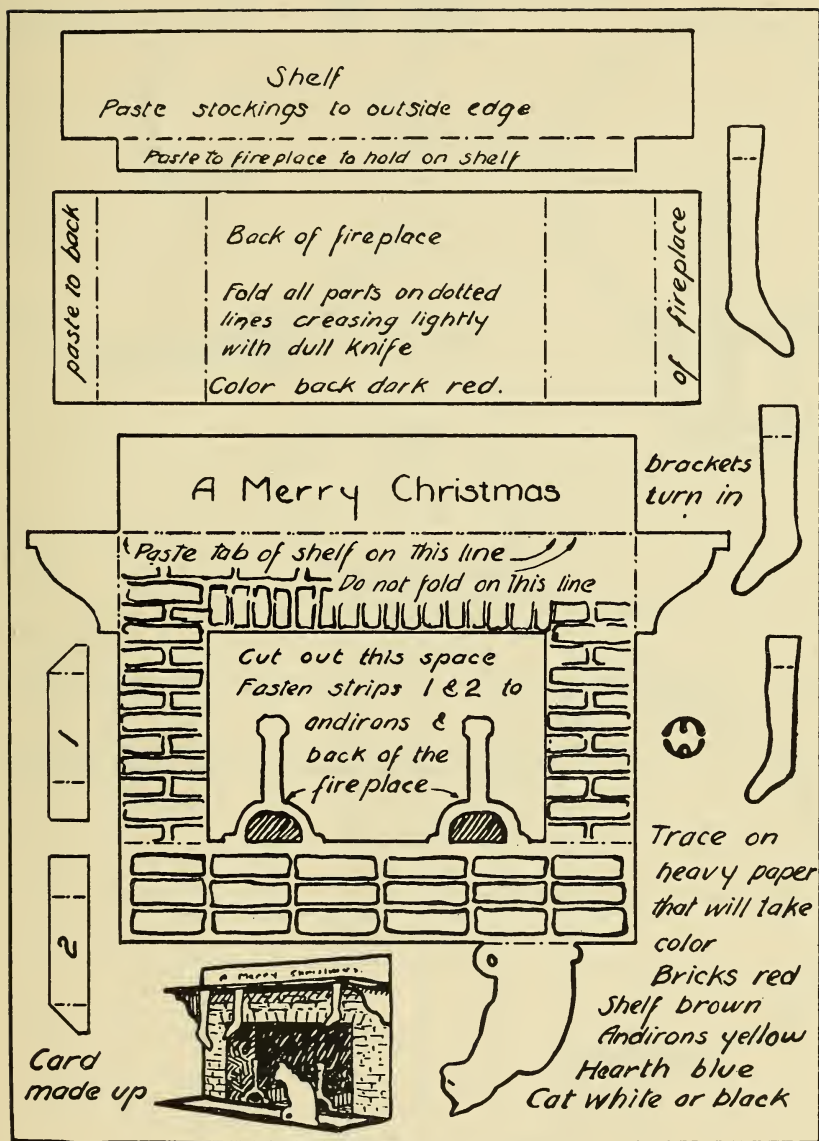 Shelf
Paste stockings to outside edge
Paste to fireplace to hold on shelf
paste to back
Back of fireplace
Fold all parts on dotted
lines creasing lightly
with dull knife
Color back dark red.
of fireplace
A Merry Christmas
brackets
turn in
Paste tab of shelf on This line
Do not fold on This line
Cut out this space
Fasten strips 1 & 2 to
andirons &
back of the
fireplace
1
2
Trace on
heavy paper
that will take
color
Bricks red
Shelf brown
Andirons yellow
Hearth blue
Cat white or black
A Merry Christmas.
Card
made up